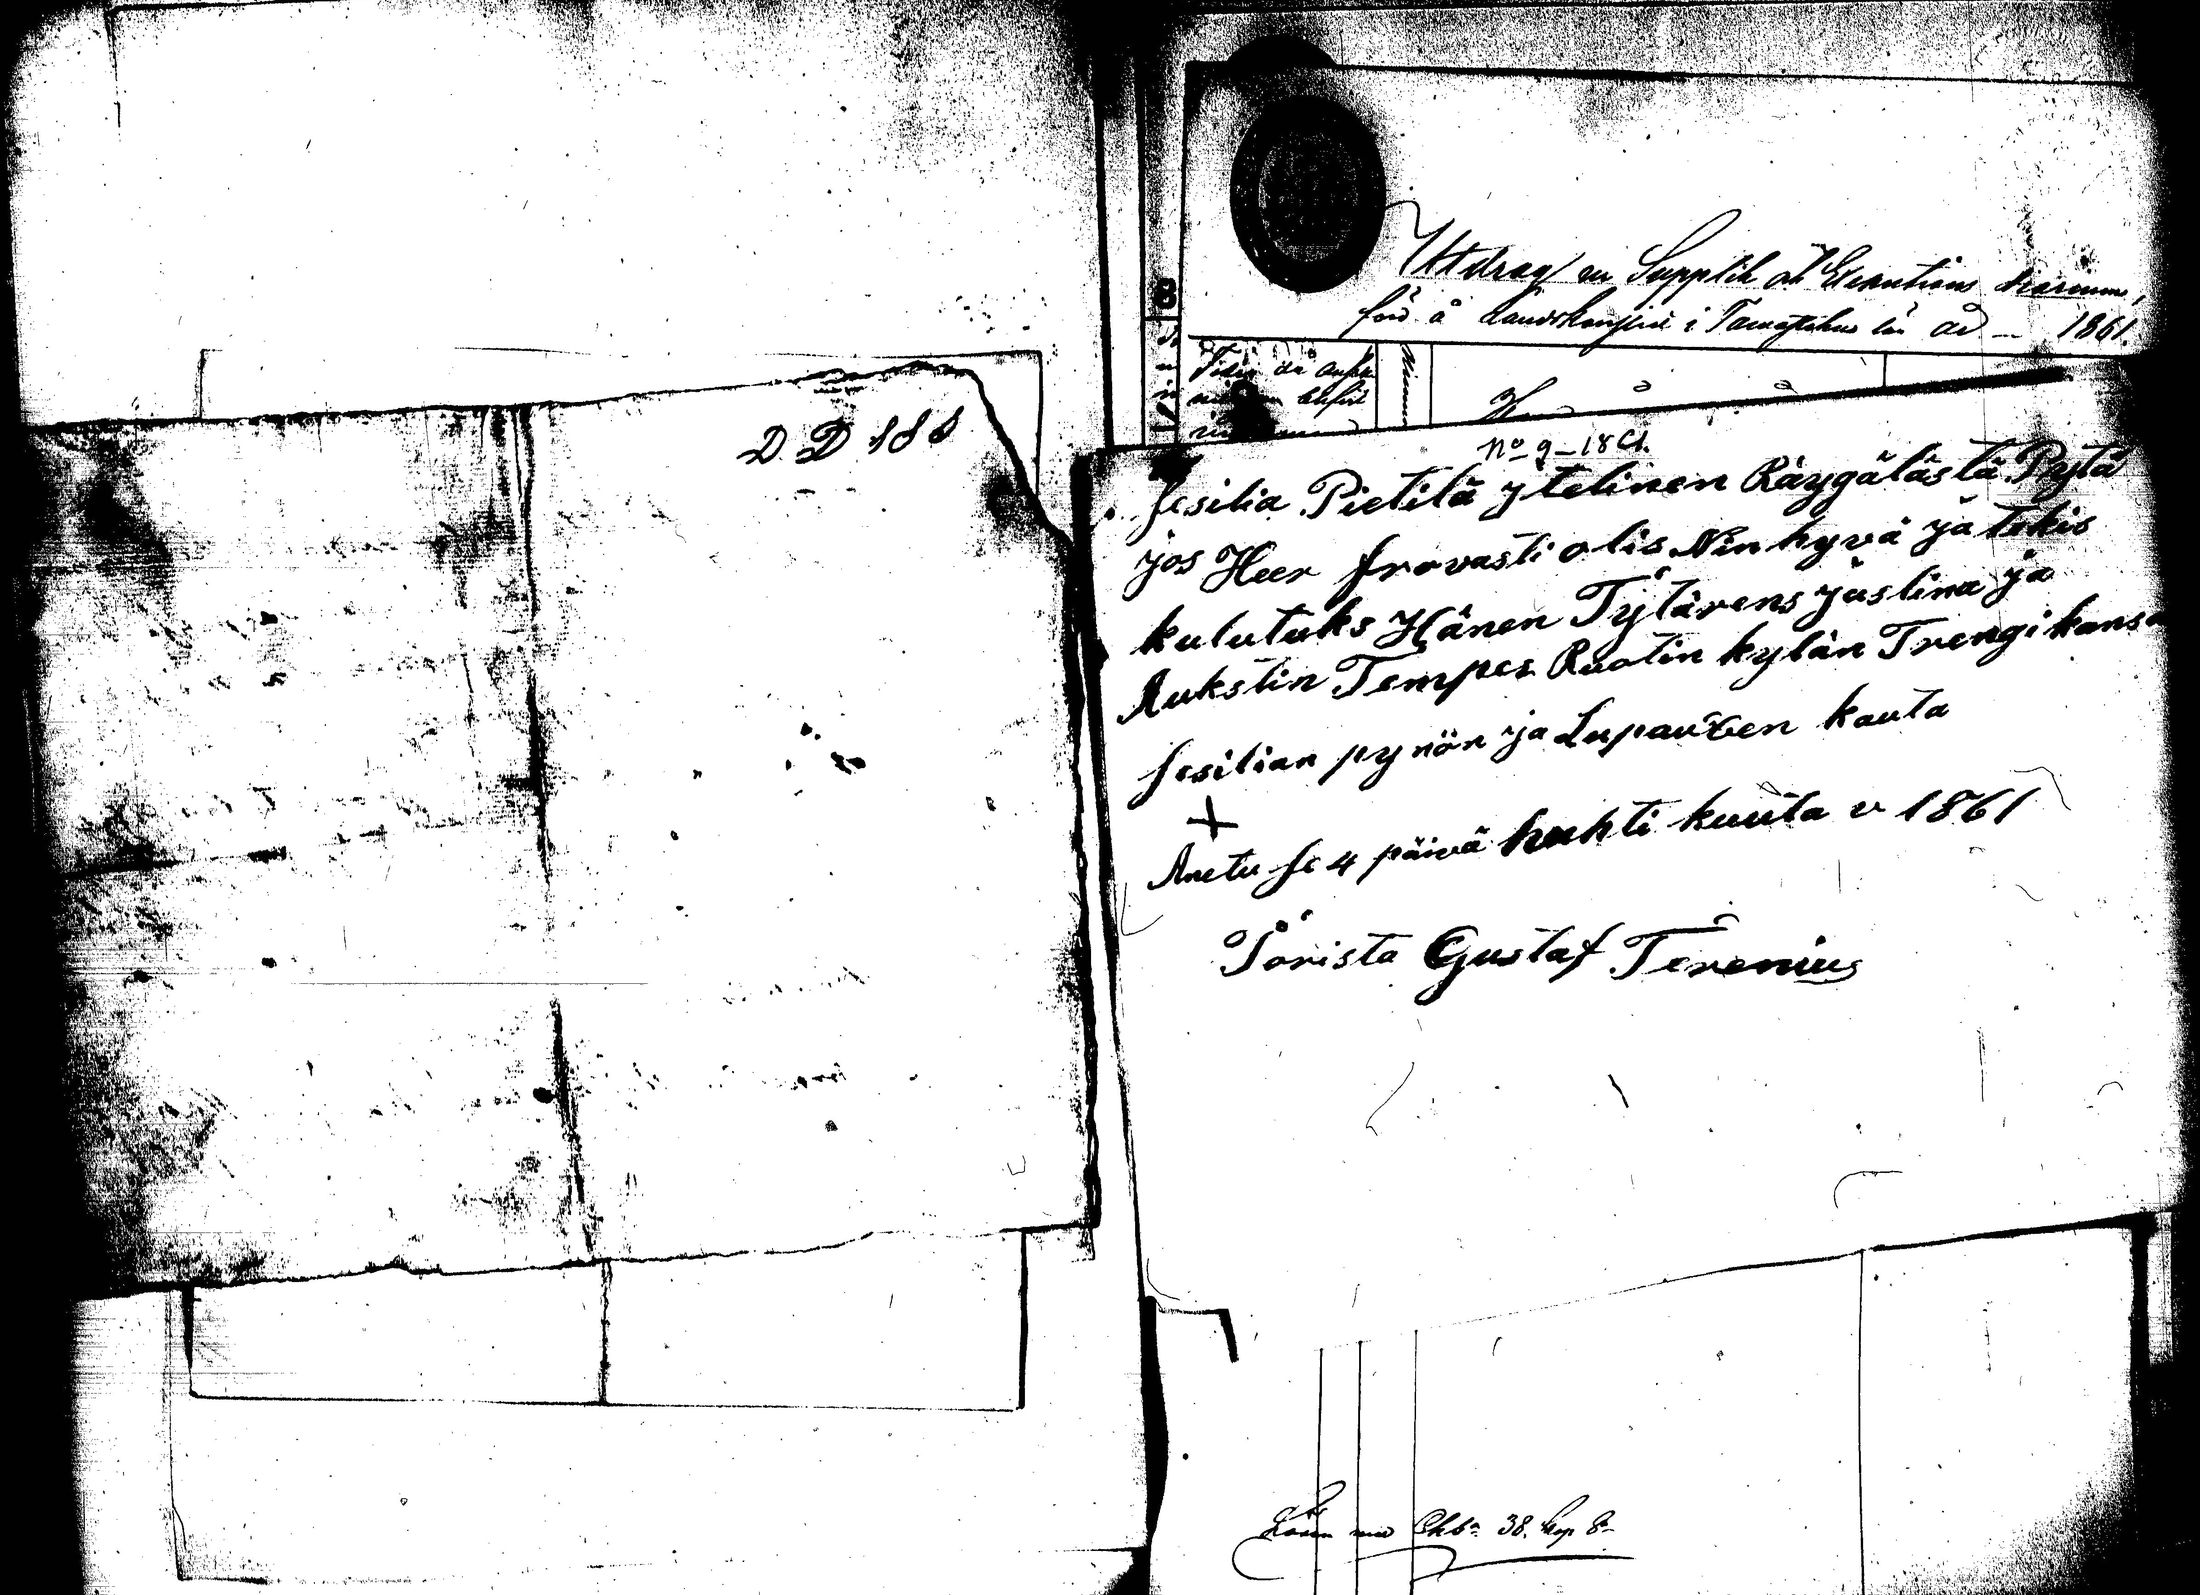 D D 188
Utdrag ur Supplik och Executions diarium,
förd å Landskansliet i Tawastehus län år – 1861.
No 9 – 1861.
Sesilia Pietilä ytelinen Räygälästä Pytä
jos Heer frovasti olis Nin hyvä ja tekis
kulutuks Hänen Tytärens justina ja
Aukstin Tempes Ruotin kylän Trengi kansa
Sesilian pynön ja Lupauxen kauta
+
Anetu se 4 päivä huhti kuuta v 1861
Torista Gustaf Terenius
Lösen med 38. kop S.